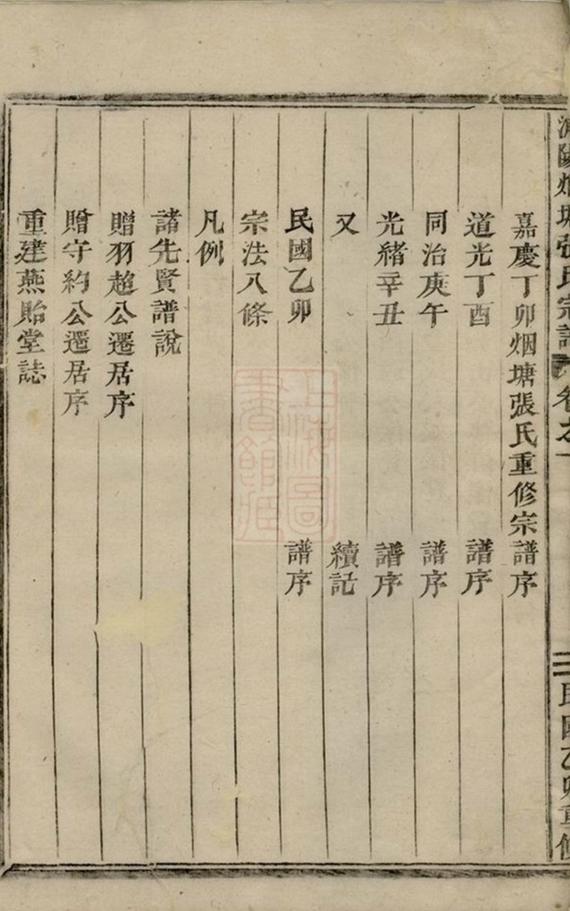 浦陽烟塘張氏宗譜 卷之一 民國乙卯重修
嘉慶丁卯烟塘張氏重修宗譜序
道光丁酉 譜序
同治庚午 譜序
光緒辛丑 譜序
又 續記
民國乙卯 譜序
宗法八條
凡例
諸先賢譜說
贈羽超公遷居序
贈守約公遷居序
重建燕貽堂誌
上海圖書館藏